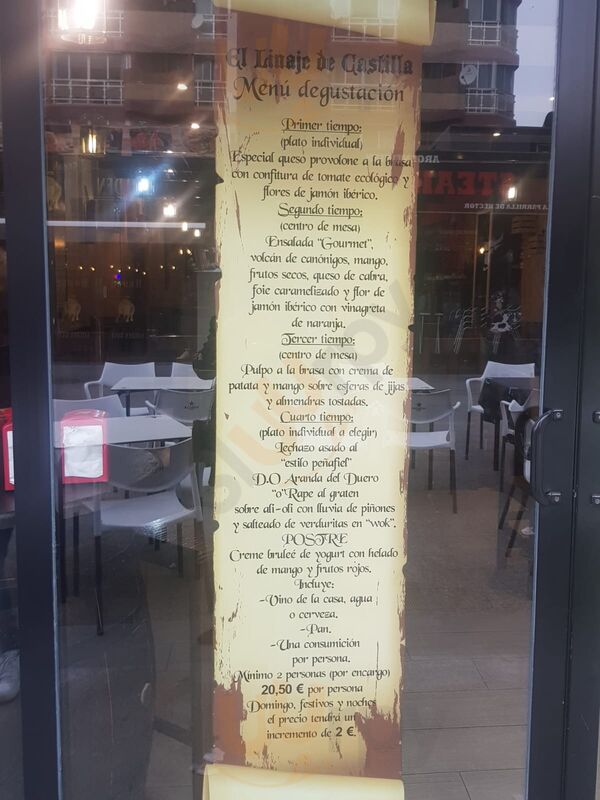 El Linaje de Castilla
Menú degustación
Primer tiempo:
(plato individual)
Especial queso provolone a la brasa
con confitura de tomate ecológico y
flores de jamón ibérico.
Segundo tiempo:
(centro de mesa)
Ensalada "Gourmet",
volcán de canónigos, mango,
frutos secos, queso de cabra,
foie caramelizado y flor de
jamón ibérico con vinagreta
de naranja.
Tercer tiempo:
(centro de mesa)
Pulpo a la brasa con crema de
patata y mango sobre esferas de jijas
y almendras tostadas.
Cuarto tiempo:
(plato individual a elegir)
Lechazo asado al
"estilo peñafiel"
D.O Aranda del Duero
"o"Rape al graten
sobre ali-oli con lluvia de piñones
y salteado de verduritas en "wok".
POSTRE
Creme bruleé de yogurt con helado
de mango y frutos rojos.
Incluye:
-Vino de la casa, agua
o cerveza.
-Pan.
-Una consumición
por persona.
Mínimo 2 personas (por encargo)
20,50 € por persona
Domingo, festivos y noches
el precio tendrá un
incremento de 2 €.